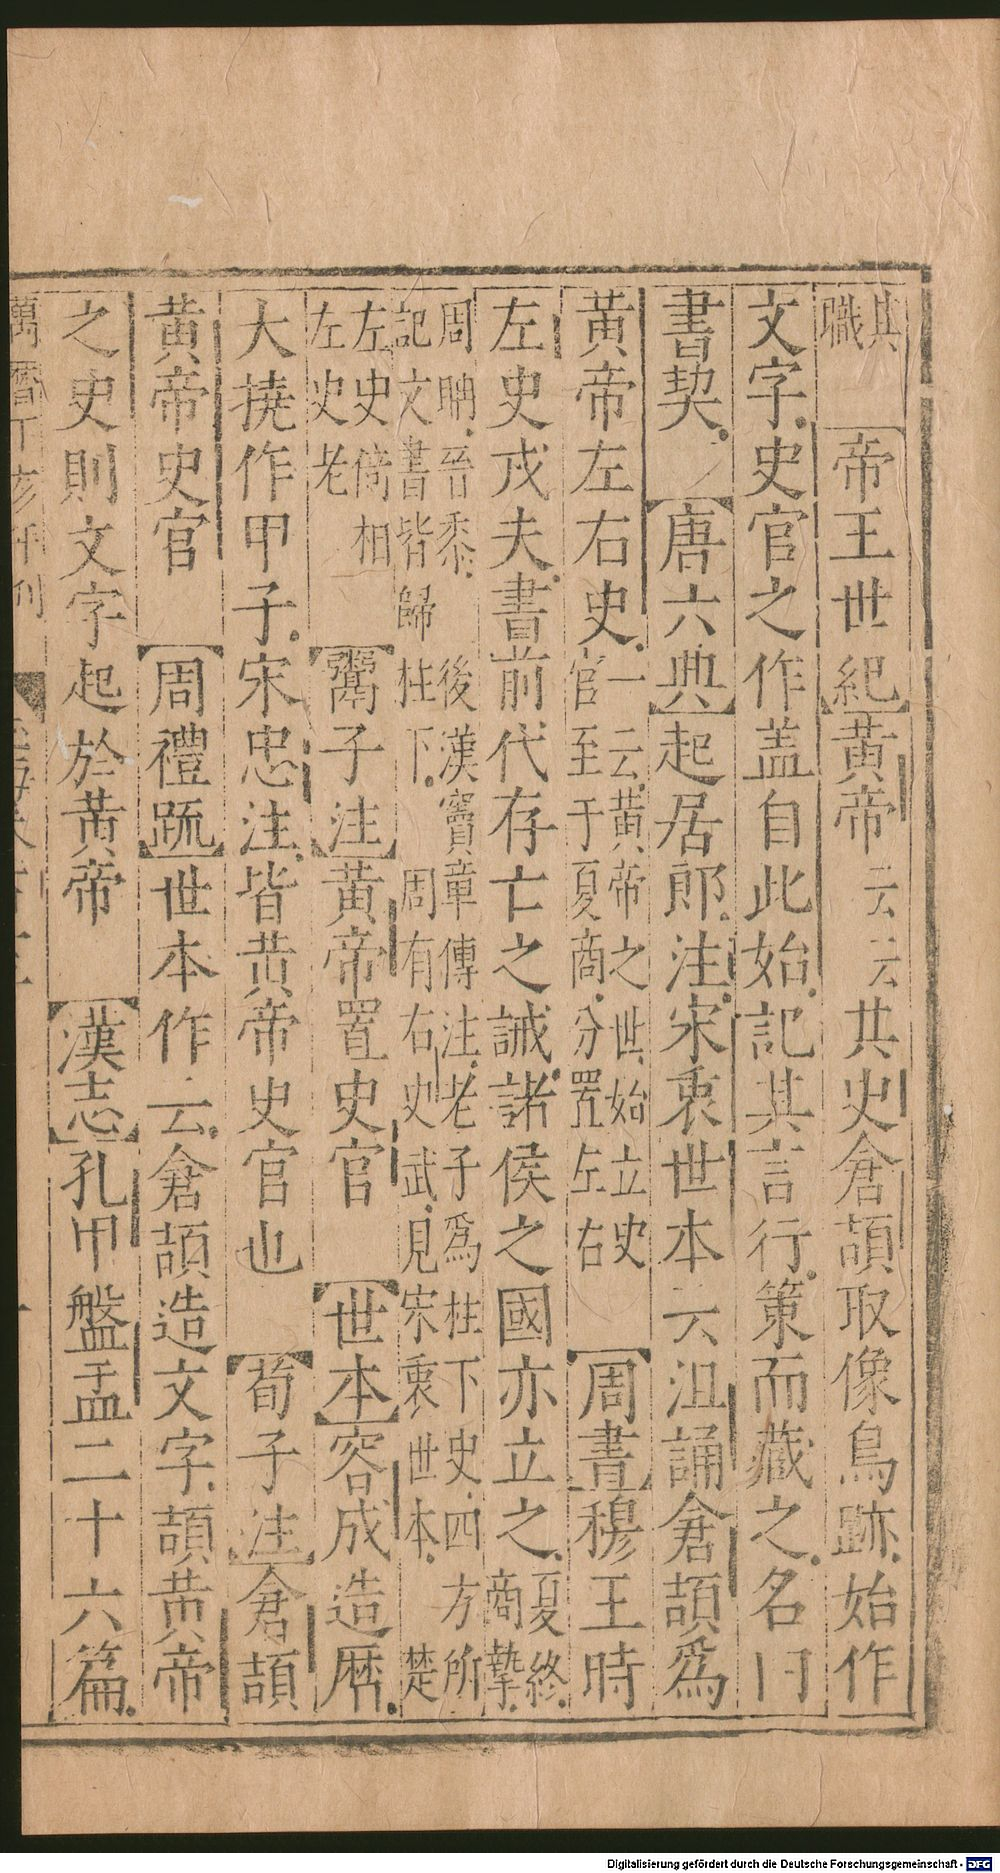 其
職
帝王世紀黃帝云云其史倉頡取像鳥跡始作
文字史官之作盖自此始記其言行策而藏之名曰
書契 唐六典起居郎注宋衷世本云沮誦倉頡爲
黃帝左右史一云黃帝之世始立史
官至于夏商分置左右 周書穆王時
左史戎夫書前代存亡之誡諸侯之國亦立之夏終
商摯
周聃晉黍後漢竇章傳注老子爲柱下史四方所
記文書皆歸柱下 周有右史武見宋衷世本 楚
左史倚相
左史老 鬻子注黃帝置史官 世本容成造曆
大撓作甲子宋忠注皆黃帝史官也 荀子注倉頡
黃帝史官 周禮疏世本作云倉頡造文字頡黃帝
之史則文字起於黃帝 漢志孔甲盤盂二十六篇
萬曆丁亥刊
Digitalisierung gefördert durch die Deutsche Forschungsgemeinschaft - DFG